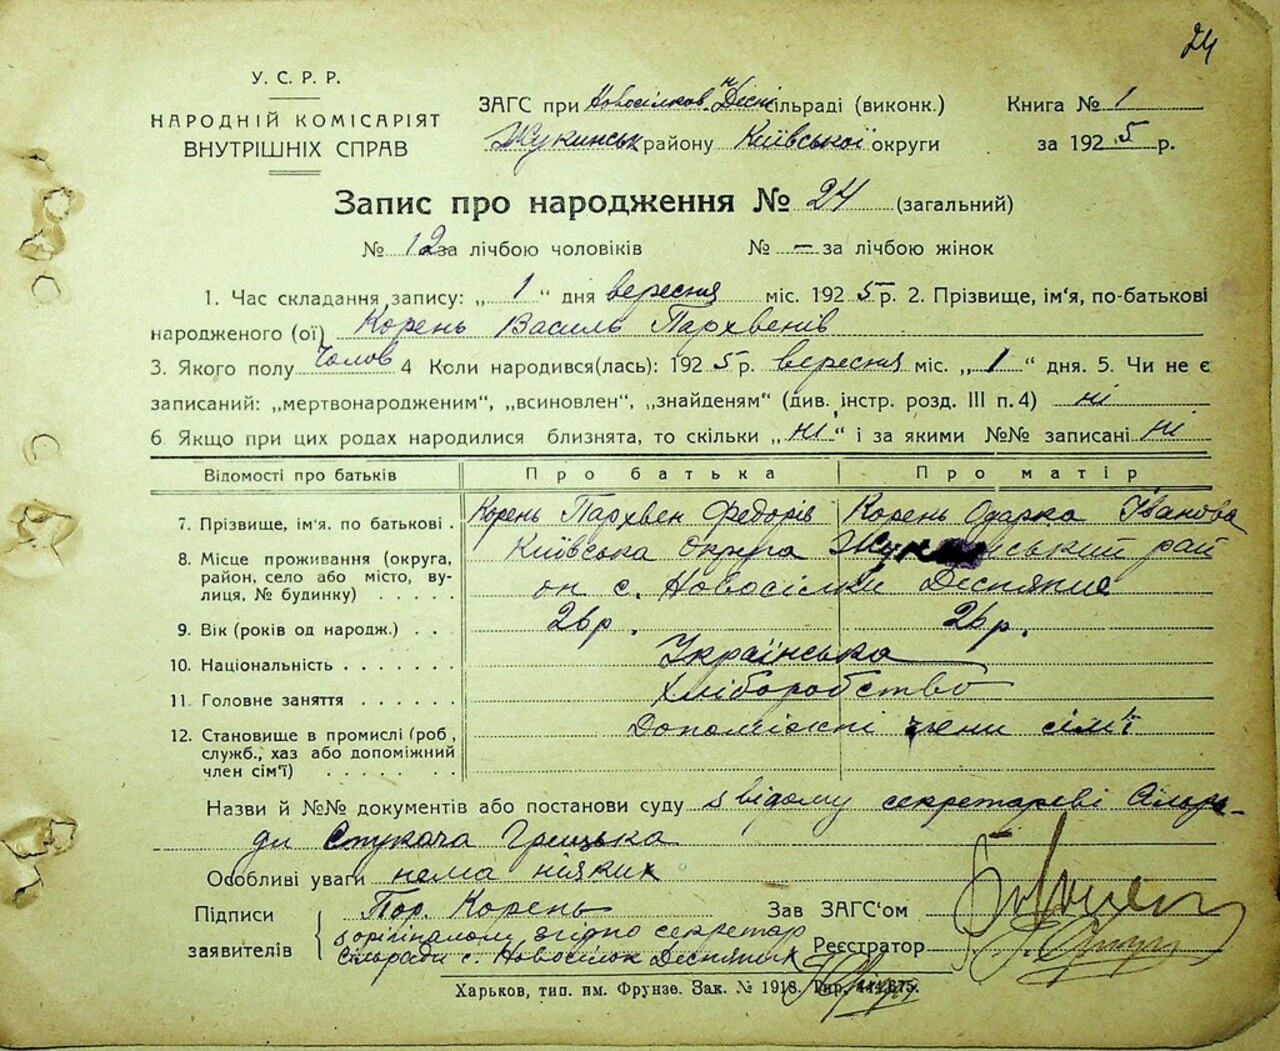 24
У. С. Р. Р.
НАРОДНІЙ КОМІСАРІЯТ
ВНУТРІШНІХ СПРАВ
ЗАГС при Новосілков. н/Десн сільраді (виконк.)
Жукинськ району Київської округи
Книга № 1
за 1925 р.
Запис про народження № 24 (загальний)
№ 12 за лічбою чоловіків № — за лічбою жінок
1. Час складання запису: „ 1 “ дня вересня міс. 1925 р. 2. Прізвище, ім'я, по-батькові
народженого (ої) Корень Василь Пархвенів
3. Якого полу Чолов 4 Коли народився(лась): 1925 р. вересня міс. „ 1 “ дня. 5. Чи не є
записаний: „мертвонародженим“, „всиновлен“, „знайденям“ (див. інстр. розд. III п. 4) ні
6 Якщо при цих родах народилися близнята, то скільки „ ні “ і за якими №№ записані ні
Відомості про батьків Про батька Про матір
7. Прізвище, ім'я. по батькові . Корень Пархвен Федорів Корень Одарка Іванова
8. Місце проживання (округа, Київська округа
район, село або місто, ву-
лиця, № будинку) . . . . . ський рай
он с. Новосілки Деспяние
9. Вік (років од народж.) . . 26 р. 26 р.
10. Національність . . . . . . . Українська
11. Головне заняття . . . . . . Хліборобство
12. Становище в промислі (роб, Допоміжні члени сім'ї
служб., хаз або допоміжний
член сім'ї) . . . . . . .
Назви й №№ документів або постанови суду з відому секретареві Сільра-
ди Стукача Грицька
Особливі уваги нема ніяких
Підписи
заявителів
Тов. Корень
з оригіналом згідно секретар
Сільради с. Новосілок
Зав ЗАГС'ом
Реєстратор
Харьков, тип. им. Фрунзе. Зак. № 1918.